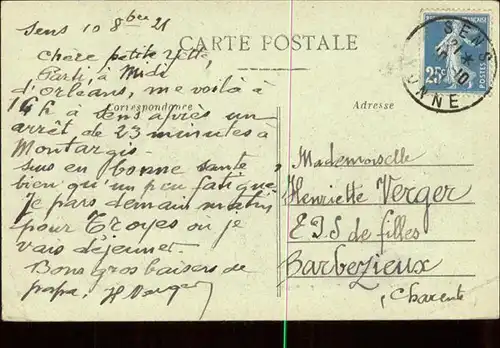 Sens 10 8bre 21
CARTE POSTALE
Chère petite Yette,
Parti, à Midi
d'Orléans, me voilà à
16h à Sens après un
arrêt de 23 minutes à
Montargis.
Suis en bonne santé
bien qu'un peu fatigué
je pars demain matin
pour Troyes où je
vais déjeuner.
Bons gros baisers de
papa. H Verger
Correspondance
Adresse
Mademoiselle
Henriette Verger
E.P.S de filles
Barbezieux
Charente
SENS
YONNE
25c
POSTES